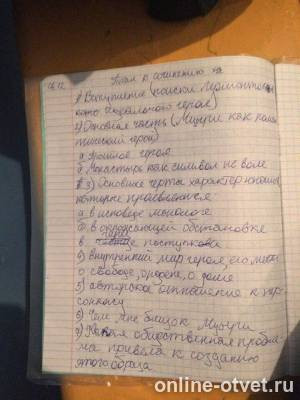 06.12 План к сочинению на
1) Вступление (поиски Лермонтовым
идеального героя)
2) Основная часть (Мцыри как роман
тический герой)
а. героя
б Монастырь как символ не воли
3) Основные черта характера
которые проявляется:
а. в исповеде
б. в окружающей обстановке
в. через поступкова
4) внутренний мир героя, его мечты
о свободе, о родене, о доме
5) авторское отношение к пер-
сонажу
6) Чем мне близок Мцыри
7) Какая общественная пробле-
ма привела к созданию
этого образа
online-otvet.ru